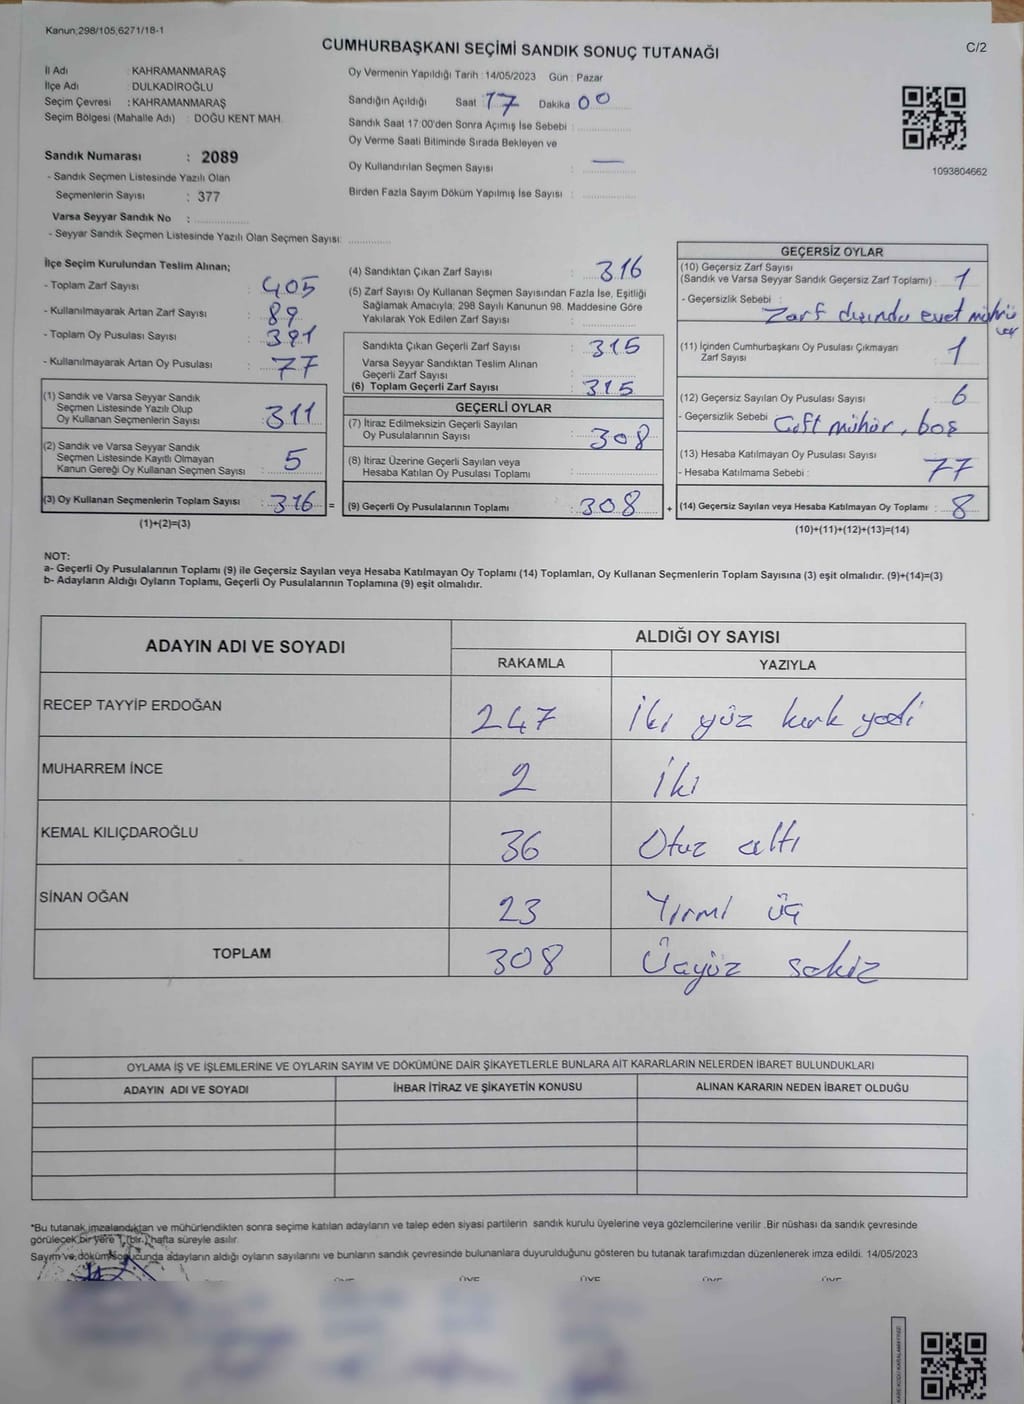 Kanun;298/105,6271/18-1
CUMHURBAŞKANI SEÇİMİ SANDIK SONUÇ TUTANAĞI
C/2
İl Adı : KAHRAMANMARAŞ
İlçe Adı : DULKADİROĞLU
Seçim Çevresi : KAHRAMANMARAŞ
Seçim Bölgesi (Mahalle Adı) : DOĞU KENT MAH.
Sandık Numarası : 2089
- Sandık Seçmen Listesinde Yazılı Olan
Seçmenlerin Sayısı : 377
Varsa Seyyar Sandık No :
- Seyyar Sandık Seçmen Listesinde Yazılı Olan Seçmen Sayısı:
Oy Vermenin Yapıldığı Tarih : 14/05/2023 Gün : Pazar
Sandığın Açıldığı Saat 17 Dakika 00
Sandık Saat 17:00'den Sonra Açımış İse Sebebi :
Oy Verme Saati Bitiminde Sırada Bekleyen ve
Oy Kullandırılan Seçmen Sayısı : —
Birden Fazla Sayım Döküm Yapılmış İse Sayısı :
1093804662
İlçe Seçim Kurulundan Teslim Alınan;
- Toplam Zarf Sayısı : 405
- Kullanılmayarak Artan Zarf Sayısı : 89
- Toplam Oy Pusulası Sayısı : 391
- Kullanılmayarak Artan Oy Pusulası : 77
(1) Sandık ve Varsa Seyyar Sandık
Seçmen Listesinde Yazılı Olup
Oy Kullanan Seçmenlerin Sayısı : 311
(2) Sandık ve Varsa Seyyar Sandık
Seçmen Listesinde Kayıtlı Olmayan
Kanun Gereği Oy Kullanan Seçmen Sayısı : 5
(3) Oy Kullanan Seçmenlerin Toplam Sayısı : 316 =
(1)+(2)=(3)
(4) Sandıktan Çıkan Zarf Sayısı : 316
(5) Zarf Sayısı Oy Kullanan Seçmen Sayısından Fazla İse, Eşitliği
Sağlamak Amacıyla; 298 Sayılı Kanunun 98. Maddesine Göre
Yakılarak Yok Edilen Zarf Sayısı :
Sandıkta Çıkan Geçerli Zarf Sayısı : 315
Varsa Seyyar Sandıktan Teslim Alınan
Geçerli Zarf Sayısı :
(6) Toplam Geçerli Zarf Sayısı : 315
GEÇERLİ OYLAR
(7) İtiraz Edilmeksizin Geçerli Sayılan
Oy Pusulalarının Sayısı : 308
(8) İtiraz Üzerine Geçerli Sayılan veya
Hesaba Katılan Oy Pusulası Toplamı :
(9) Geçerli Oy Pusulalarının Toplamı : 308 +
GEÇERSİZ OYLAR
(10) Geçersiz Zarf Sayısı
(Sandık ve Varsa Seyyar Sandık Geçersiz Zarf Toplamı) : 1
- Geçersizlik Sebebi :
Zarf dışında evet mührü
var
(11) İçinden Cumhurbaşkanı Oy Pusulası Çıkmayan
Zarf Sayısı : 1
(12) Geçersiz Sayılan Oy Pusulası Sayısı : 6
- Geçersizlik Sebebi : Çift mühür, boş
(13) Hesaba Katılmayan Oy Pusulası Sayısı :
77
- Hesaba Katılmama Sebebi :
(14) Geçersiz Sayılan veya Hesaba Katılmayan Oy Toplamı : 8
(10)+(11)+(12)+(13)=(14)
NOT:
a- Geçerli Oy Pusulalarının Toplamı (9) ile Geçersiz Sayılan veya Hesaba Katılmayan Oy Toplamı (14) Toplamları, Oy Kullanan Seçmenlerin Toplam Sayısına (3) eşit olmalıdır. (9)+(14)=(3)
b- Adayların Aldığı Oyların Toplamı, Geçerli Oy Pusulalarının Toplamına (9) eşit olmalıdır.
ADAYIN ADI VE SOYADI
ALDIĞI OY SAYISI
RAKAMLA YAZIYLA
RECEP TAYYİP ERDOĞAN 247 İki yüz kırk yedi
MUHARREM İNCE 2 İki
KEMAL KILIÇDAROĞLU 36 Otuz altı
SİNAN OĞAN 23 Yirmi üç
TOPLAM 308 Üçyüz sekiz
OYLAMA İŞ VE İŞLEMLERİNE VE OYLARIN SAYIM VE DÖKÜMÜNE DAİR ŞİKAYETLERLE BUNLARA AİT KARARLARIN NELERDEN İBARET BULUNDUKLARI
ADAYIN ADI VE SOYADI İHBAR İTİRAZ VE ŞİKAYETİN KONUSU ALINAN KARARIN NEDEN İBARET OLDUĞU
*Bu tutanak imzalandıktan ve mühürlendikten sonra seçime katılan adayların ve talep eden siyasi partilerin sandık kurulu üyelerine veya gözlemcilerine verilir .Bir nüshası da sandık çevresinde
görülecek bir yere 1 (bir) hafta süreyle asılır.
Sayım ve döküm sonucunda adayların aldığı oyların sayılarını ve bunların sandık çevresinde bulunanlara duyurulduğunu gösteren bu tutanak tarafımızdan düzenlenerek imza edildi. 14/05/2023